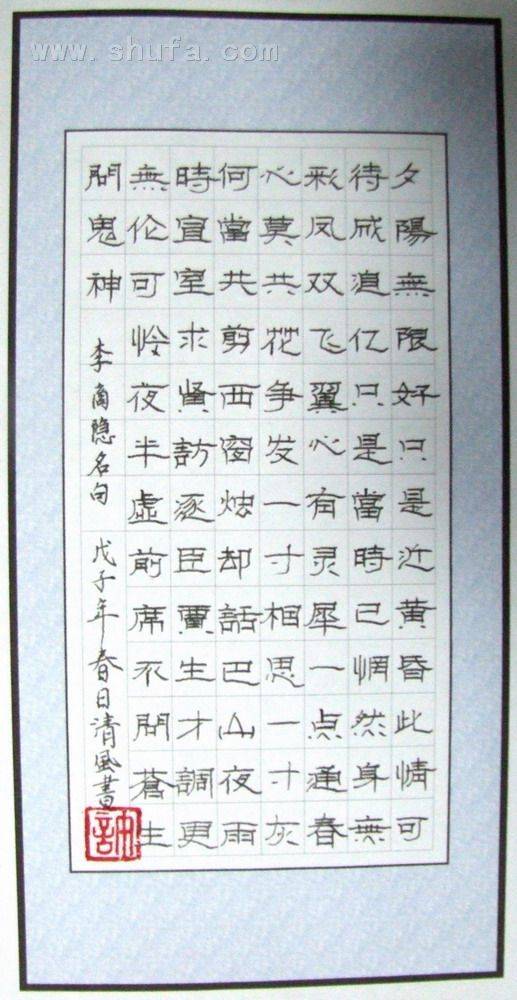 www.shufa.com
夕陽無限好只是近黄昏此情可
待成追亿只是當時已惘然身無
彩凤双飞翼心有灵犀一点通春
心莫共花争发一寸相思一寸灰
何當共剪西窗烛却話巴山夜雨
時宣室求賢訪逐臣賈生才調更
無伦可怜夜半虚前席不問蒼生
問鬼神 李商隐名句 戊子年春日清風書